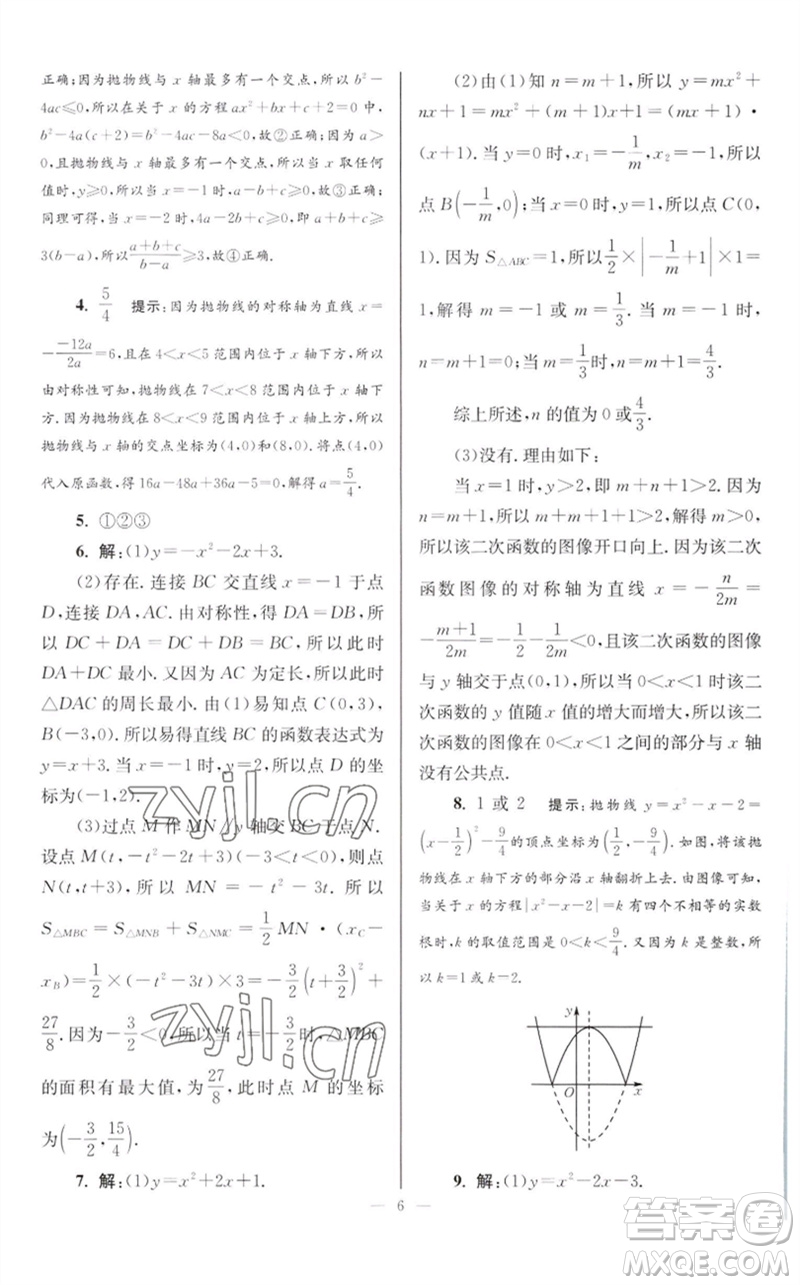 正确;因为抛物线与 x 轴最多有一个交点,所以 b²－
4ac≤0,所以在关于 x 的方程 ax²＋bx＋c＋2＝0 中,
b²－4a(c＋2)＝b²－4ac－8a＜0,故②正确;因为 a＞
0,且抛物线与 x 轴最多有一个交点,所以当 x 取任何
值时,y≥0,所以当 x＝－1 时,a－b＋c≥0,故③正确;
同理可得,当 x＝－2 时,4a－2b＋c≥0,即 a＋b＋c≥
3(b－a),所以(a＋b＋c)/(b－a)≥3,故④正确.
4. 5/4 提示:因为抛物线的对称轴为直线 x＝
－(－12a)/(2a)＝6,且在 4＜x＜5 范围内位于 x 轴下方,所以
由对称性可知,抛物线在 7＜x＜8 范围内位于 x 轴下
方.又因为抛物线在 8＜x＜9 范围内位于 x 轴上方,所以
抛物线与 x 轴的交点坐标为(4,0)和(8,0).将点(4,0)
代入原函数,得 16a－48a＋36a－5＝0,解得 a＝5/4.
5. ①②③
6. 解:(1)y＝－x²－2x＋3.
(2)存在. 连接 BC 交直线 x＝－1 于点
D,连接 DA,AC. 由对称性,得 DA＝DB,所
以 DC＋DA＝DC＋DB＝BC,所以此时
DA＋DC 最小. 又因为 AC 为定长,所以此时
△DAC 的周长最小. 由(1)易知点 C(0,3),
B(－3,0). 所以易得直线 BC 的函数表达式为
y＝x＋3. 当 x＝－1 时,y＝2,所以点 D 的坐
标为(－1,2).
(3)过点 M 作 MN∥y 轴交 BC 于点 N.
设点 M(t,－t²－2t＋3)(－3＜t＜0),则点
N(t,t＋3),所以 MN＝－t²－3t. 所以
S△MBC＝S△MNB＋S△NMC＝1/2 MN·(xC－
xB)＝1/2×(－t²－3t)×3＝－3/2(t＋3/2)²＋
27/8. 因为－3/2＜0,所以当 t＝－3/2时,△MBC
的面积有最大值,为27/8,此时点 M 的坐标
为(－3/2,15/4).
7. 解:(1)y＝x²＋2x＋1.
(2)由(1)知 n＝m＋1,所以 y＝mx²＋
nx＋1＝mx²＋(m＋1)x＋1＝(mx＋1)·
(x＋1). 当 y＝0 时,x₁＝－1/m,x₂＝－1,所以
点 B(－1/m,0);当 x＝0 时,y＝1,所以点 C(0,
1). 因为 S△ABC＝1,所以1/2×|－1/m＋1|×1＝
1,解得 m＝－1 或 m＝1/3. 当 m＝－1 时,
n＝m＋1＝0;当 m＝1/3时,n＝m＋1＝4/3.
综上所述,n 的值为 0 或4/3.
(3)没有. 理由如下:
当 x＝1 时,y＞2,即 m＋n＋1＞2. 因为
n＝m＋1,所以 m＋m＋1＋1＞2,解得 m＞0,
所以该二次函数的图像开口向上. 因为该二次
函数图像的对称轴为直线 x＝－n/(2m)＝
－(m＋1)/(2m)＝－1/2－1/(2m)＜0,且该二次函数的图像
与 y 轴交于点(0,1),所以当 0＜x＜1 时该二
次函数的 y 值随 x 值的增大而增大,所以该二
次函数的图像在 0＜x＜1 之间的部分与 x 轴
没有公共点.
8. 1 或 2 提示:抛物线 y＝x²－x－2＝
(x－1/2)²－9/4的顶点坐标为(1/2,－9/4). 如图,将该抛
物线在 x 轴下方的部分沿 x 轴翻折上去. 由图像可知,
当关于 x 的方程|x²－x－2|＝k 有四个不相等的实数
根时,k 的取值范围是 0＜k＜9/4. 又因为 k 是整数,所
以 k＝1 或 k＝2.
y
O
x
9. 解:(1)y＝－x²－2x＋3.
6
zyjl.cn
zyjl.cn
答案卷
MXQE.COM